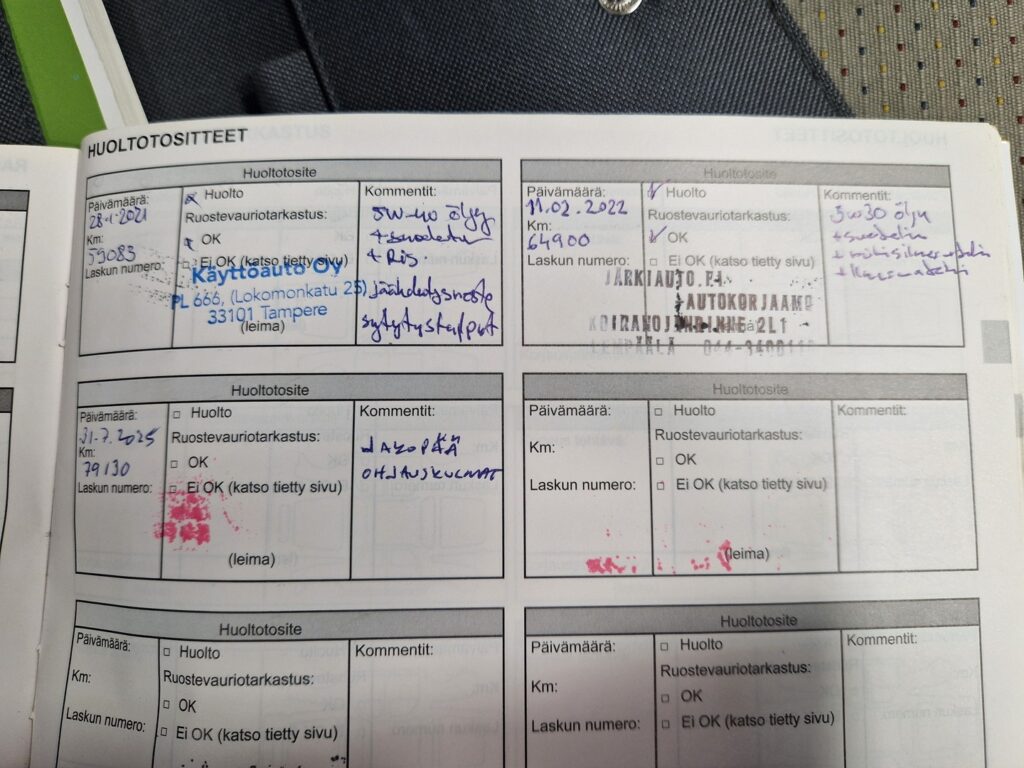 HUOLTOTOSITTEET
Huoltotosite
Päivämäärä:
28.1.2021
Km:
59083
Laskun numero:
Huolto
Ruostevauriotarkastus:
OK
Ei OK (katso tietty sivu)
Käyttöauto Oy
PL 666, (Lokomonkatu 25)
33101 Tampere
(leima)
Kommentit:
5W-40 öljy
+ suodatin
jäähdytysneste
sytytystulpat
Huoltotosite
Päivämäärä:
11.02.2022
Km:
64900
Laskun numero:
Huolto
Ruostevauriotarkastus:
OK
Ei OK (katso tietty sivu)
JÄRKIAUTO.FI
AUTOKORJAAMO
KOIRANOJANRINNE 2L1
LEMPÄÄLÄ
Kommentit:
5W30 öljy
+ suodatin
Huoltotosite
Päivämäärä:
31.7.2025
Km:
79130
Laskun numero:
Huolto
Ruostevauriotarkastus:
OK
Ei OK (katso tietty sivu)
(leima)
Kommentit:
OHJAUSKULMAT
Huoltotosite
Päivämäärä:
Km:
Laskun numero:
Huolto
Ruostevauriotarkastus:
OK
Ei OK (katso tietty sivu)
(leima)
Kommentit:
Huoltotosite
Päivämäärä:
Km:
Laskun numero:
Huolto
Ruostevauriotarkastus:
OK
Ei OK (katso tietty sivu)
Kommentit:
Huoltotosite
Päivämäärä:
Km:
Laskun numero:
Huolto
Ruostevauriotarkastus:
OK
Ei OK (katso tietty sivu)
Kommentit: